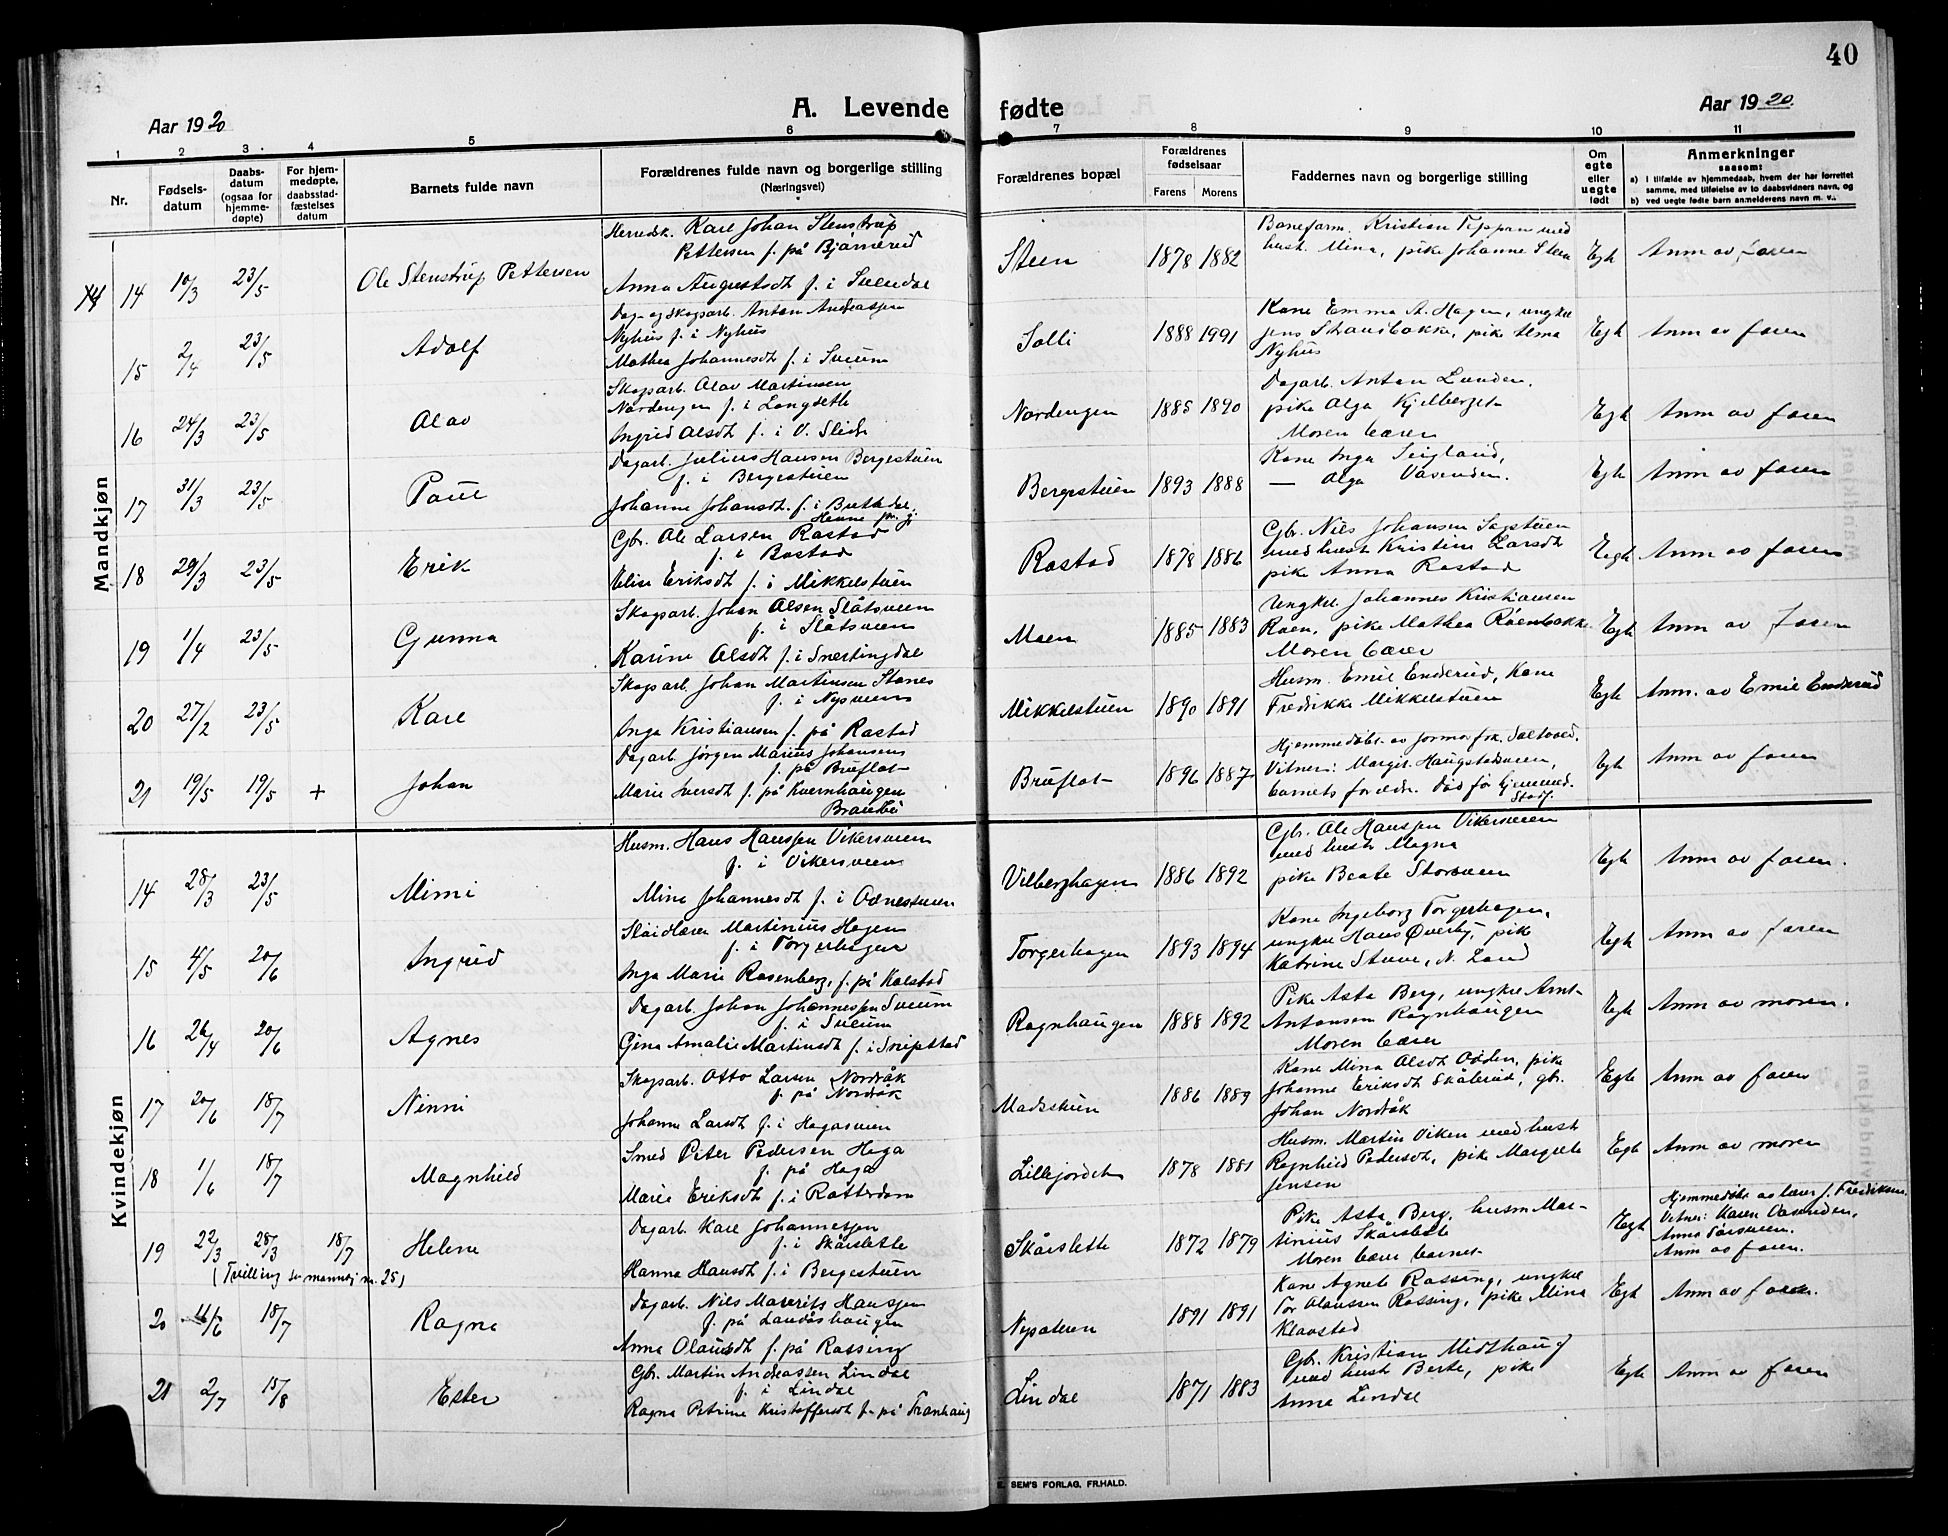 40
A. Levende fødte
Aar 1920
Aar 1920
1 2 3 4 5 6 7 8 9 10 11
Nr.
Fødsels-
datum
Daabs-
datum
(ogsaa for
hjemme-
døpte)
For hjem-
medøpte,
daabsstad-
fæstelses
datum
Barnets fulde navn
Forældrenes fulde navn og borgerlige stilling
(Næringsvei)
Forældrenes bopæl
Forældrenes
fødselsaar
Farens Morens
Faddernes navn og borgerlige stilling
Om
egte
eller
uegte
født
Anmerkninger
saasom:
a) i tilfælde av hjemmedaab, hvem der har forrettet
samme, med tilføielse av to daabsvidners navn, og
b) ved uegte fødte barn anmelderens navn m. v..
Mandkjøn
14 10/3 23/5 Ole Stenstrup Pettersen
Herredsk. Karl Johan Stenstrup
Pettersen f. på Bjørnerud
Anna Augustsdt f. i Svendal
Steen 1878 1882
Baneform. Kristian Tippan med
hust. Mina, pike Johanne Steen
Egte Anm av faren
15 2/4 23/5 Adolf
Dag- og Skogsarb. Anton Andreassen
Nyhus f. i Nyhus
Mathea Johannesdt f. i Sveum
Solli 1888 1991
Kone Emma A. Hagen, ungkel
Jens Strandbakke, pike Alma
Nyhus
Egte Anm av faren
16 24/3 23/5 Olav
Skogsarb. Olav Martinsen
Nordengen f. i Langslette
Ingrid Olsdt f. i V. Slidre
Nordengen 1885 1890
Dagarb. Anton Lunden.
pike Olga Kjelberget
Moren bærer
Egte Anm av faren
17 31/3 23/5 Paul
Dagarb. Julius Hansen Bergestuen
f. i Bergestuen
Johanne Johansdt. f. i Brettedal,
Bergestuen 1893 1888
Kone Inga Seigland,
— Olga Vasenden.
Egte Anm av faren
18 29/3 23/5 Erik
Gbr. Ole Larsen Rostad
f. i Rostad
Elise Eriksdt f. i Mikkelstuen
Rostad 1878 1886
Gbr. Nils Johansen Sagstuen
med hust Kristine Larsdt
pike Anna Rostad
Egte Anm av faren
19 1/4 23/5 Gunna
Skogsarb. Johan Olsen Slåtsveen
f. i Slåtsveen
Karine Olsdt f. i Snertingdal
Moen 1885 1883
Ungkel. Johannes Kristiansen
Roen, pike Mathea Røenbakke
Moren bærer
Egte Anm av faren
20 27/2 23/5 Kåre
Skogsarb. Johan Martinsen Stenes
f. i Nysveen
Inga Kristiansen f. på Rostad
Mikkelstuen 1890 1891
Husm. Emil Enderud, Kone
Fredrikke Mikkelstuen
Egte Anm. av Emil Enderud
21 19/5 19/5 + Johan
Dagarb. Jørgen Marius Johansens
f. på Bruflat
Marie Iversdt f. på Kvernhaugen
Brandbu
Bruflat 1896 1887
Hjemmedøbt av jormor frk. Saltveed.
Vitner: Margit Haugstadsveen,
barnets forældr. Død før hjemmed.
Stadf.
Egte Anm av faren
Kvindekjøn
14 28/3 23/5 Mimi
Husm. Hans Hanssen Vikersveen
f. i Vikersveen
Mina Johannesdt f. i Odnestuen
Vilberghagen 1886 1892
Gbr. Ole Hanssen Vikersveen
med hust Magna
pike Beate Storsveen
Egte Anm av faren.
15 4/5 20/6 Ingrid
Martinius Hagen
f. i Torgerhagen
Inga Marie Rosenberg, f. på Kolstad
Torgerhagen 1893 1894
Kone Ingeborg Torgerhagen,
ungkel Hans Øverby, pike
Katrine Stuve, N. Land
Egte Anm av faren
16 26/4 20/6 Agnes
Dagarb. Johan Johannessen Sveum
f. i Sveum
Gina Amalie Martinsdt f. i Sveipstad
Rognhaugen 1888 1892
Pike Asta Berg, ungkel Arnt
Antonsen Rognhaugen
Moren bærer
Egte Anm av moren.
17 20/6 18/7 Ninni
Skogsarb. Otto Larsen Nordråk
f. på Nordråk
Johanne Larsdt f. i Hagasveen
Madsstuen 1886 1889
Kone Mina Olsdt Odden, pike
Johanne Eriksdt Skålerud, gbr.
Johan Nordråk
Egte Anm av faren
18 1/6 18/7 Magnhild
Smed Peter Pedersen Haga
f. på Haga
Marie Eriksdt f. i Rotterdam
Lillejordet 1878 1881
Husm. Martin Viken med hust
Ragnhild Pedersdt, pike Margrete
Jensen
Egte Anm av moren
19 22/3 28/3 18/7 Helene
(Tvilling se mannkj nr. 25)
Dagarb Karl Johannessen
f. i Skårslette
Hanna Hansdt f. i Bergestuen
Skårslette 1872 1879
Pike Asta Berg, husm Mar-
tinius Skårslette
Moren bærer barnet
Egte Hjemmedøbt av lærer J. Fredriksen
Vitner: Karen Vasenden,
Anna Torsveen.
Anm av faren.
20 4/6 18/7 Ragna
Dagarb. Nils Maurits Hanssen
f. på Landåshaugen
Anna Olausdt f. på Rossing
Nyseteren 1891 1891
Kone Agnete Rossing, ungkel
Tor Olaussen Rossing, pike Mina
Klavstad
Egte Anm av faren.
21 2/7 15/8 Ester
Gbr. Martin Andreassen Lindal
f. i Lindal
Ragna Petrine Kristoffersdt f. på Tranhaug
Lindal 1871 1883
Gbr. Kristian Midthaug
med hust Berte, pike
Anna Lindal
Egte Anm av faren
E. SEM'S FORLAG, FR.HALD.